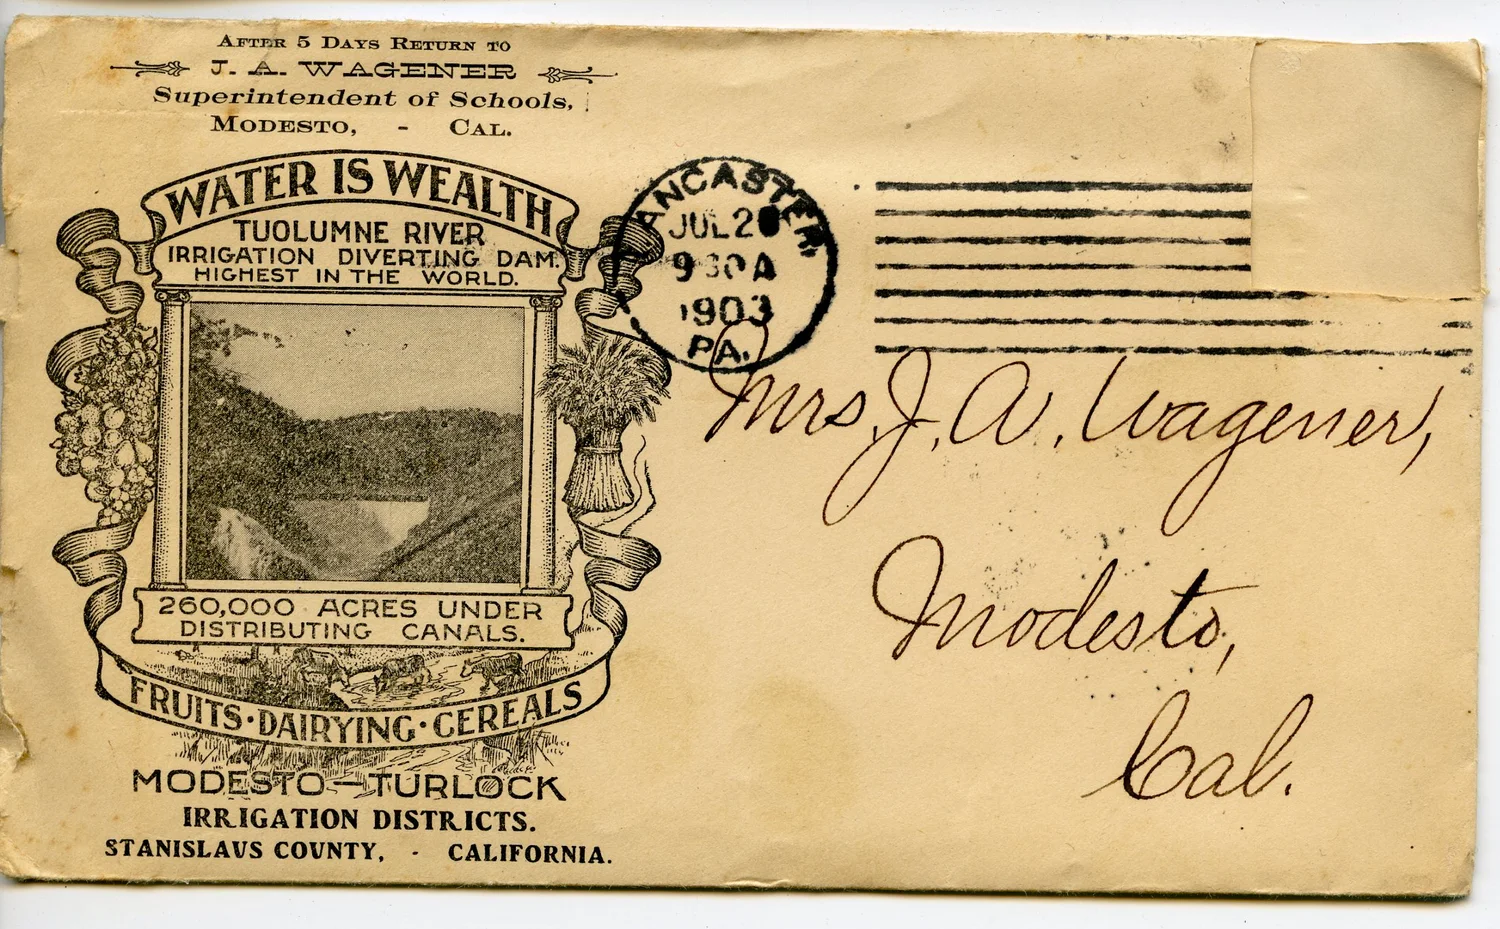 AFTER 5 DAYS RETURN TO
J. A. WAGENER
Superintendent of Schools,
MODESTO, - CAL.
WATER IS WEALTH
TUOLUMNE RIVER
IRRIGATION DIVERTING DAM.
HIGHEST IN THE WORLD.
260,000 ACRES UNDER
DISTRIBUTING CANALS.
FRUITS · DAIRYING · CEREALS
MODESTO-TURLOCK
IRRIGATION DISTRICTS.
STANISLAUS COUNTY, - CALIFORNIA.
LANCASTER
JUL
1903
PA.
Mrs. J. A. Wagener,
Modesto,
Cal.